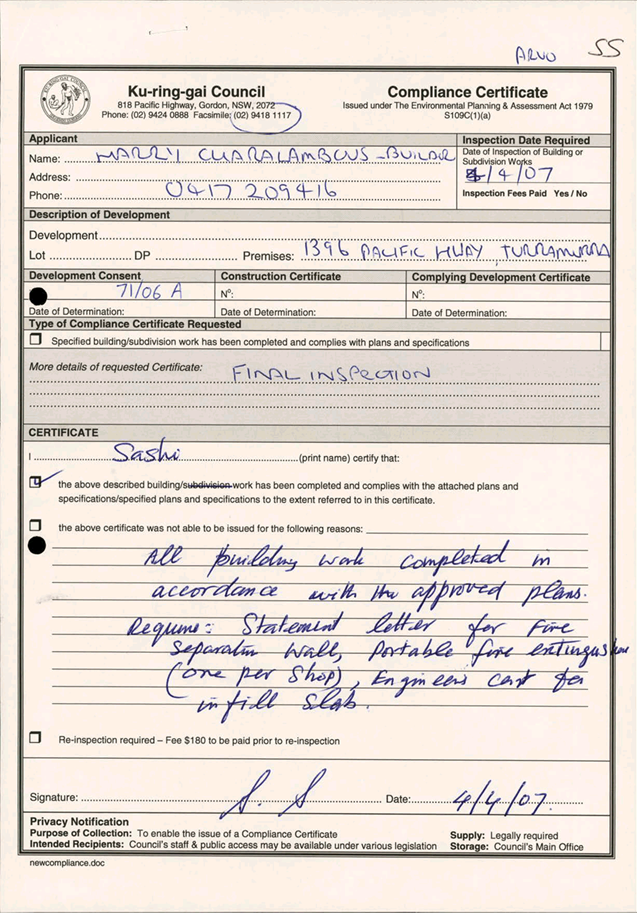 ARVO SS
KU-RING-GAI COUNCIL
Ku-ring-gai Council
818 Pacific Highway, Gordon, NSW, 2072
Phone: (02) 9424 0888 Facsimile: (02) 9418 1117
Compliance Certificate
Issued under The Environmental Planning & Assessment Act 1979
S109C(1)(a)
Applicant
Name: HARRY CHARALAMBOUS - BUILDER
Address:
Phone: 0417 209416
Inspection Date Required
Date of Inspection of Building or
Subdivision Works
4/4/07
Inspection Fees Paid Yes / No
Description of Development
Development
Lot DP Premises: 1396 PACIFIC HWAY, TURRAMURRA
Development Consent Construction Certificate Complying Development Certificate
71/06 A N°: N°:
Date of Determination: Date of Determination: Date of Determination:
Type of Compliance Certificate Requested
Specified building/subdivision work has been completed and complies with plans and specifications
More details of requested Certificate: FINAL INSPECTION
CERTIFICATE
I Sashi (print name) certify that:
the above described building/subdivision work has been completed and complies with the attached plans and
specifications/specified plans and specifications to the extent referred to in this certificate.
the above certificate was not able to be issued for the following reasons:
All building work completed in
accordance with the approved plans.
Require: Statement letter for Fire
Separation wall, Portable fire
(one per Shop), Engineers cert for
infill Slab.
Re-inspection required – Fee $180 to be paid prior to re-inspection
Signature: S. S Date: 4/4/07.
Privacy Notification
Purpose of Collection: To enable the issue of a Compliance Certificate Supply: Legally required
Intended Recipients: Council's staff & public access may be available under various legislation Storage: Council's Main Office
newcompliance.doc